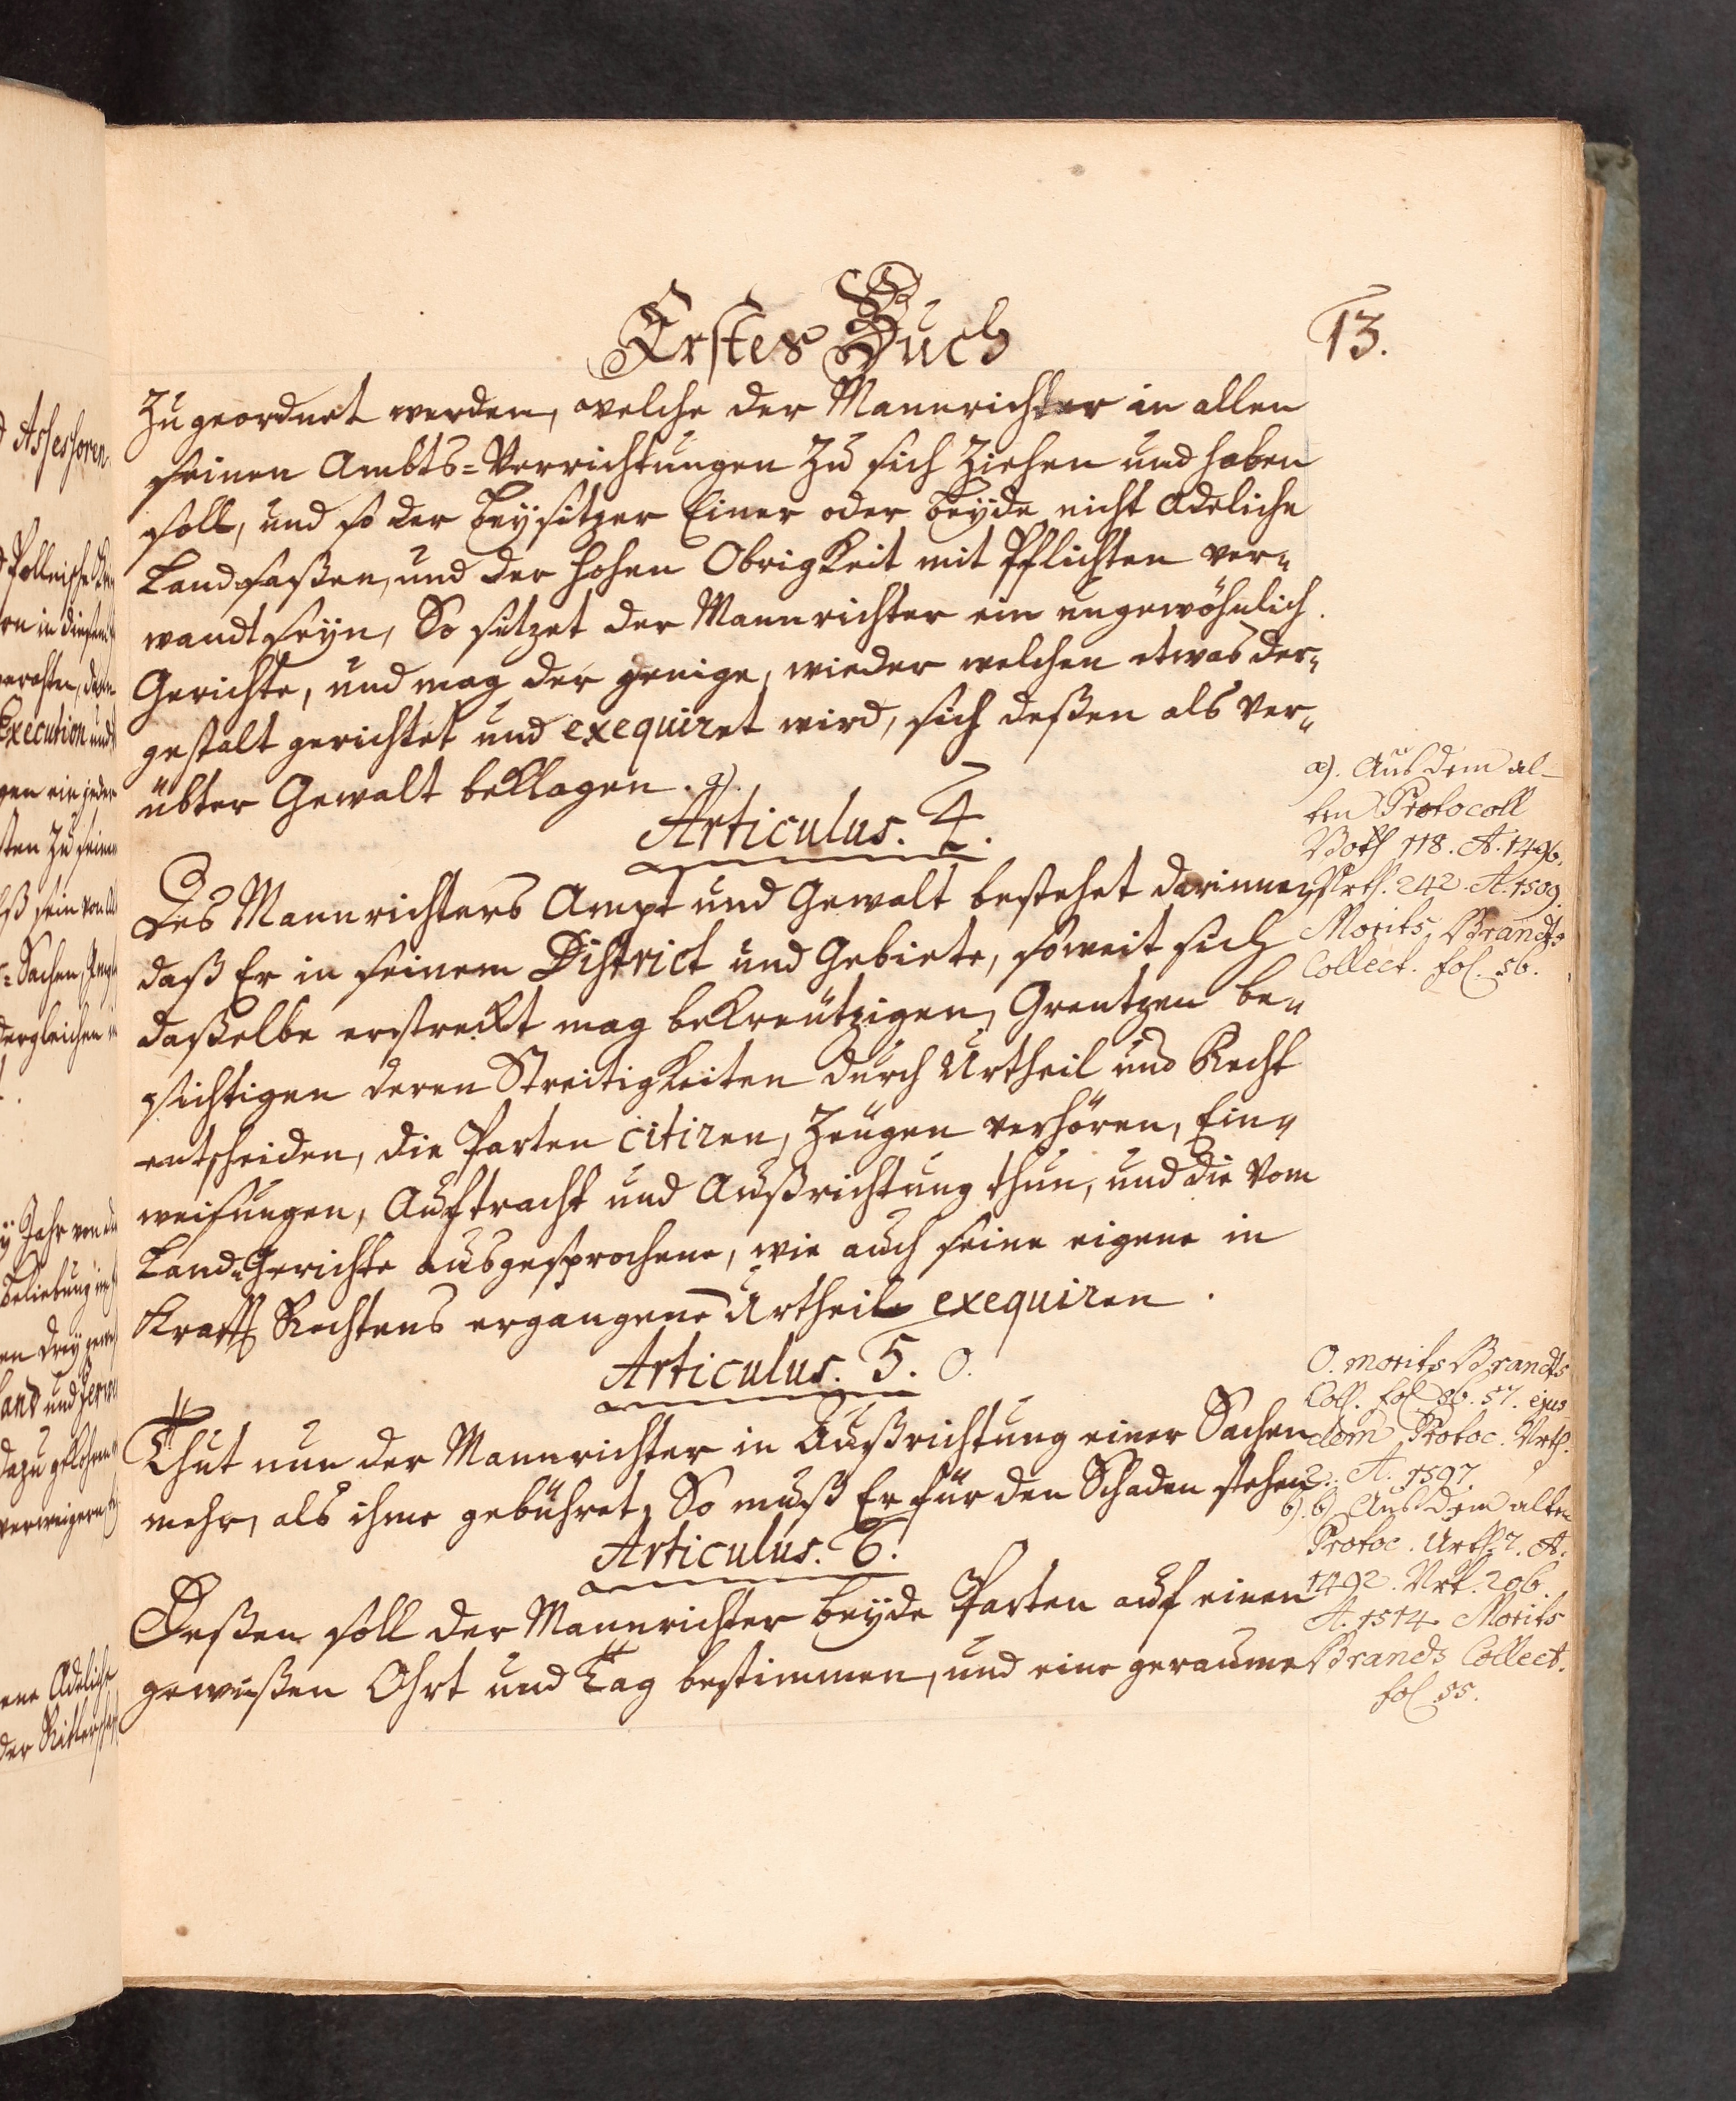 Erstes Buch
13.
Zugeordnet werden, welche der Mannrichter in allen
seinen Ambts=Verrichtungen Zu sich Ziehen und haben
soll, und so der beysitzer Einer oder beyde nicht Adeliche
Landsaßen, und der hohen Obrigkeit mit Pflichten ver„
wandt seyn, So sitzet der Mannrichter ein ungewöhnlich
Gerichte, und mag der jenige, wieder welchen etwas der„
gestalt gerichtet und exequiret wird, sich deßen als ver„
übter Gewalt beklagen. a).
Articulus. 4.
Des Mannrichters Ampt und Gewalt bestehet darinnen,
daß Er in seinem District und Gebiete, soweit sich
daßelbe erstreckt mag bekreutzigen, Grentzen be„
sichtigen deren Streitigkeiten durch Urtheil und Recht
entscheiden, die Parten citiren, Zeugen verhören, Ein„
weisungen, Auftracht und Außrichtung thun, und die vom
Land„Gerichte ausgesprochene, wie auch seine eigene in
Krafft Rechtens ergangene Urtheile exequiren.
Articulus. 5. O.
Thut nun der Mannrichter in Außrichtung einer Sachen
mehr, als ihme gebühret, So muß Er für den Schaden stehen
Articulus. 6.
Deßen soll der Mannrichter beyde Parten auf einen
gewißen Ohrt und Tag bestimmen, und eine geraume
a). Aus dem al-
ten Protocoll
118. A. 1496.
Urth. 242. A. 1509.
Morits Brandts
Collect. fol. 56.
O. Morits Brandts
Coll. fol. 56. 57. ejus
dem Protoc. Urth.
2. A. 1597.
b). b) Aus dem alten
Protoc. Urth. 7. A.
1492. Urt. 206.
A. 1514 Morits
Brands Collect.
fol. 55.